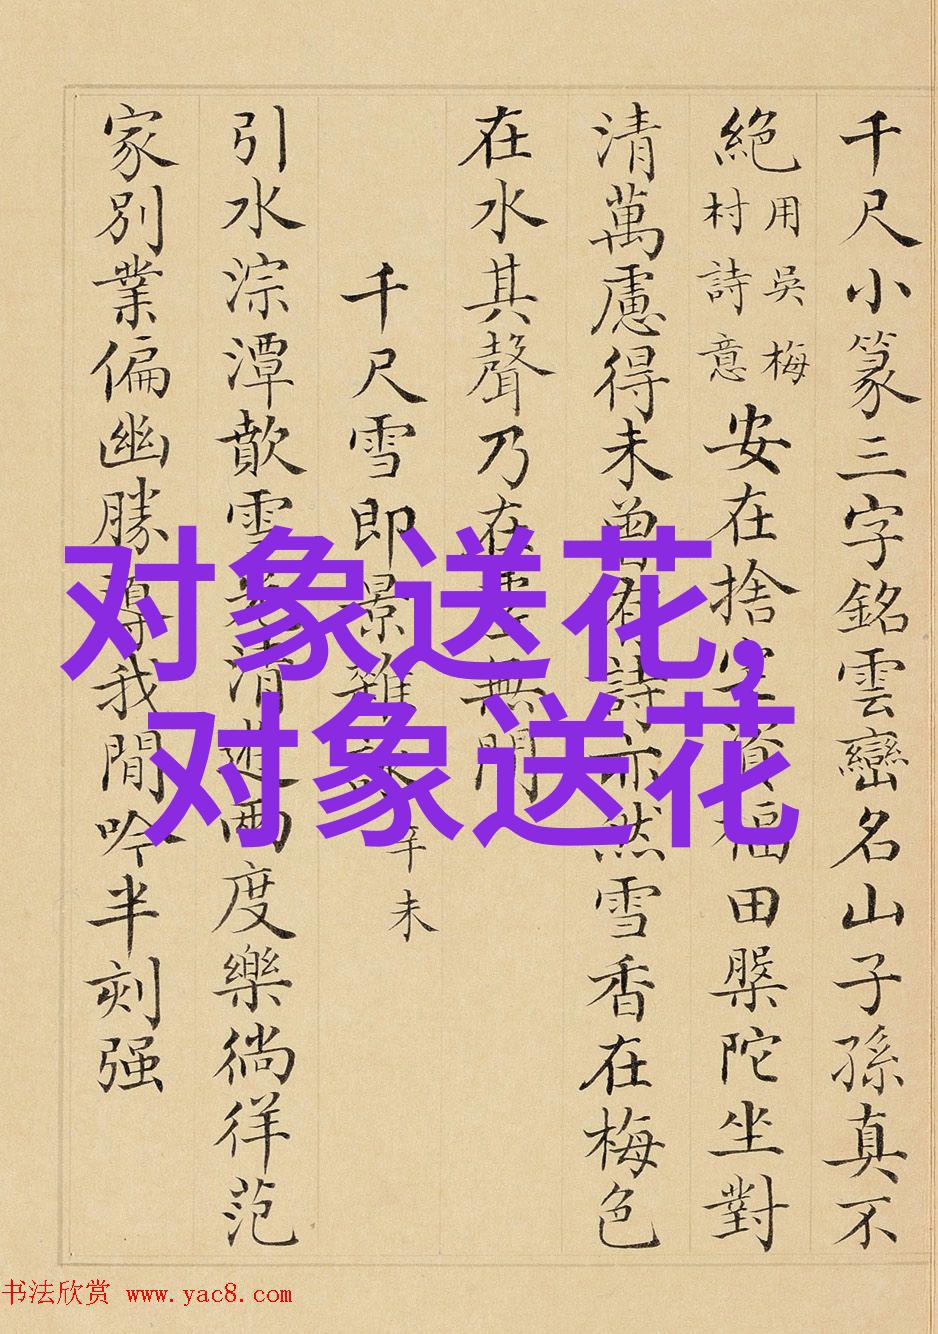 千尺小篆三字銘雲巒名山子孫真不
絕用吳梅村詩意安在捨宅資福田槃陀坐對
清萬慮得未曾有詩亦然雪香在梅色
在水其聲乃在無間
千尺雪即景雜詠辛未
引水淙潭歕雪清遊兩度樂徜徉范
家別業偏幽勝導我閒吟半刻强
对象送花,
对象送花
书法欣赏 www.yac8.com